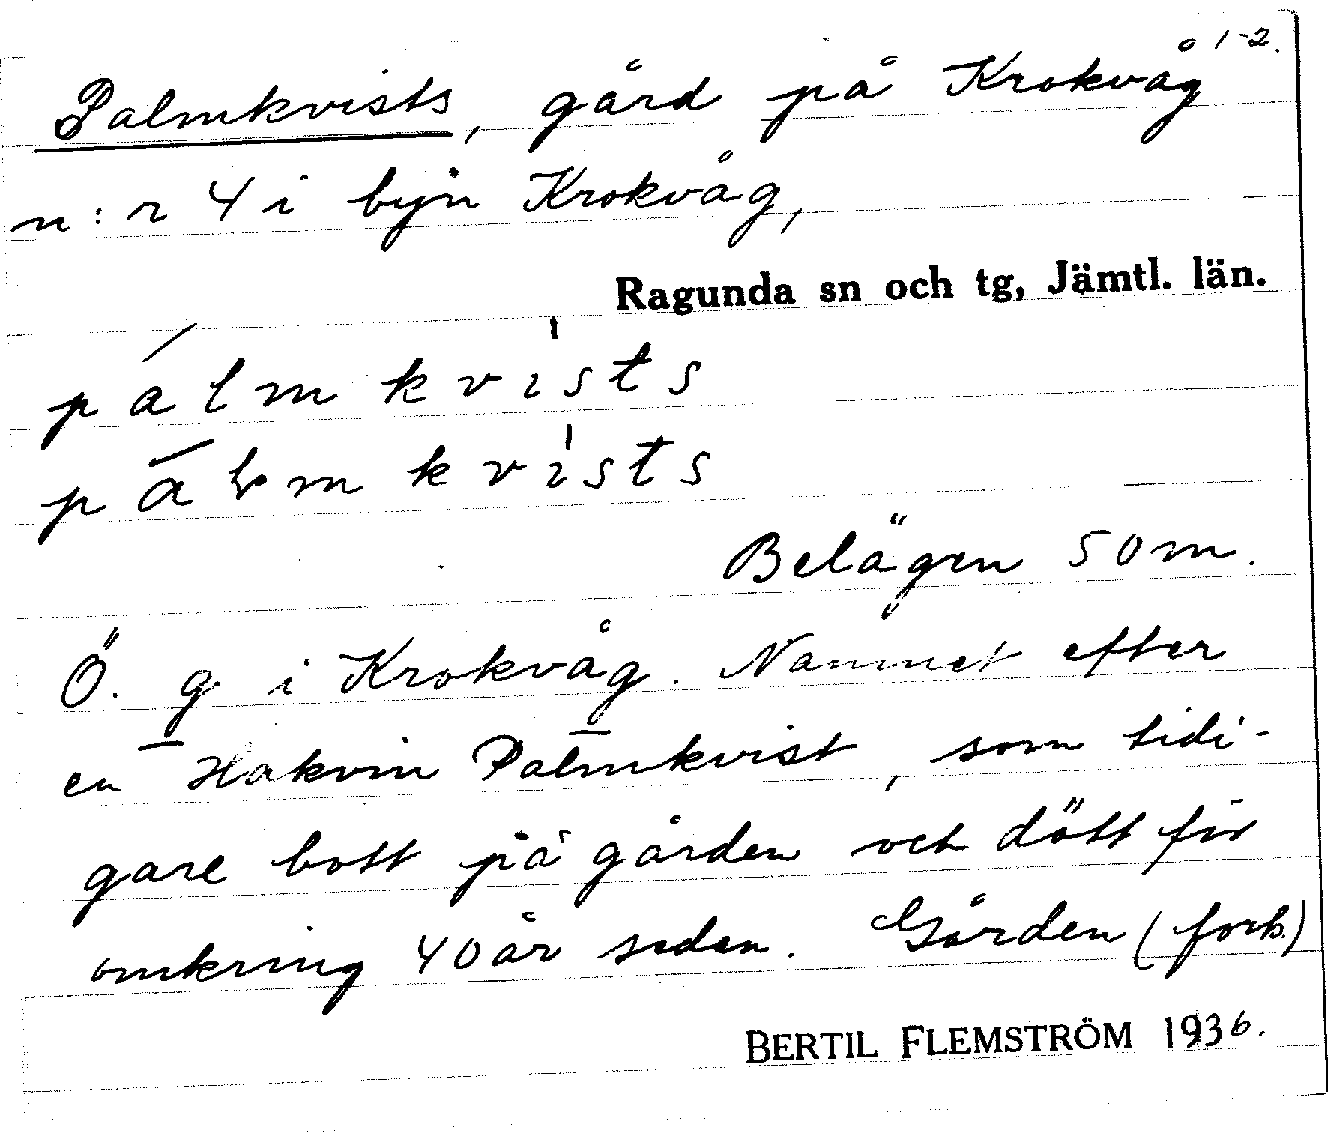 Palmkvists, gård på Krokvåg 1-2.
n:r 4 i byn Krokvåg,
Ragunda sn och tg, Jämtl. län.
pálmkvists
pálmkvists
Belägen 50 m.
Ö. g i Krokvåg. Namnet efter
en Hakvin Palmkvist, som tidi-
gare bott på gården och dött för
omkring 40 år sedan. Gården (forts.)
BERTIL FLEMSTRÖM 1936.